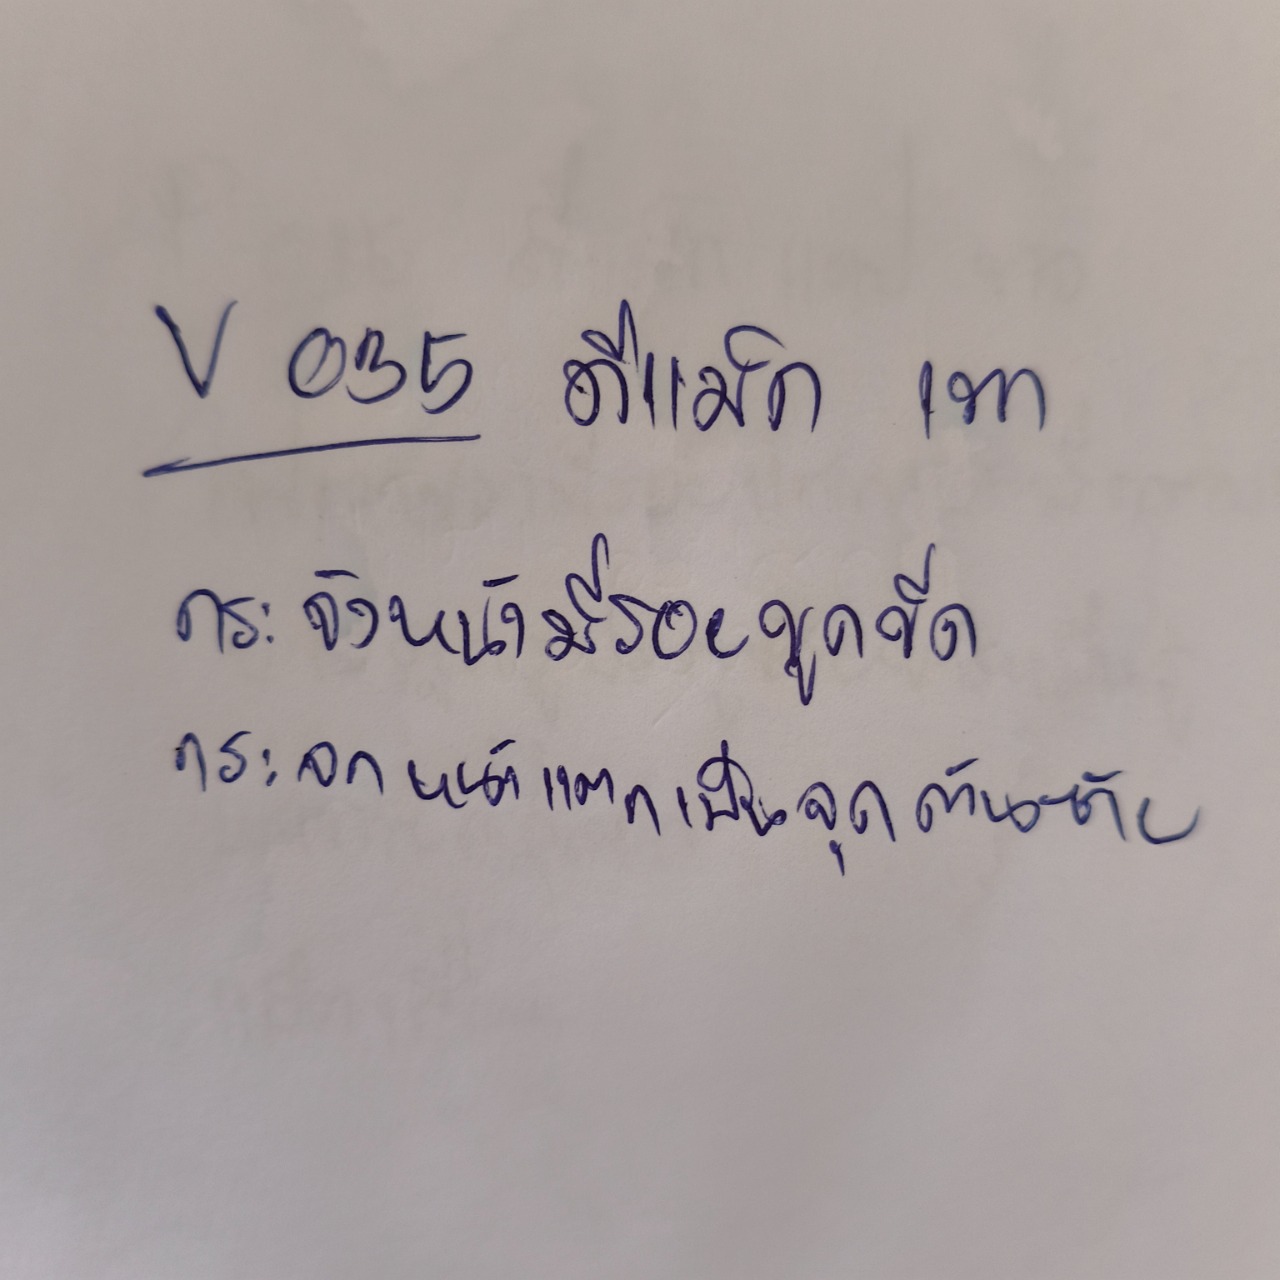 V 035 ดีแม็ค เทา
กระจังหน้ามีรอยขูดขีด
กระจกหน้าแตกเป็นจุดด้านซ้าย